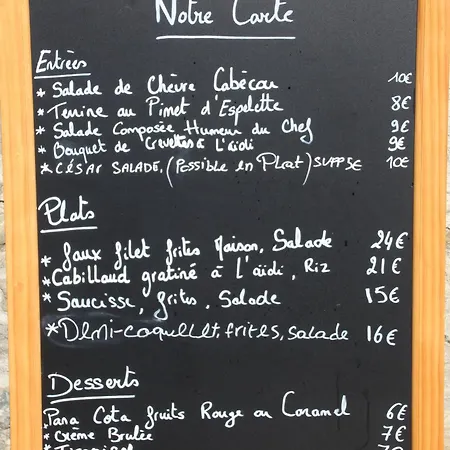 Notre Carte
Entrées
* Salade de Chèvre Cabécou 10€
* Terrine au Piment d'Espelette 8€
* Salade Composée Humeur du Chef 9€
* Bouquet de Crevettes à L'aïoli 9€
* CÉSAR SALADE, (Possible en Plat) SUPP 5€ 10€
Plats
* faux filet frites Maison, Salade 24€
* Cabillaud gratiné à L'aïoli, Riz 21€
* Saucisse, frites, Salade 15€
* Demi-coquelet, frites, salade 16€
Desserts
Pana Cota fruits Rouge ou Caramel 6€
* Crème Brulée 7€